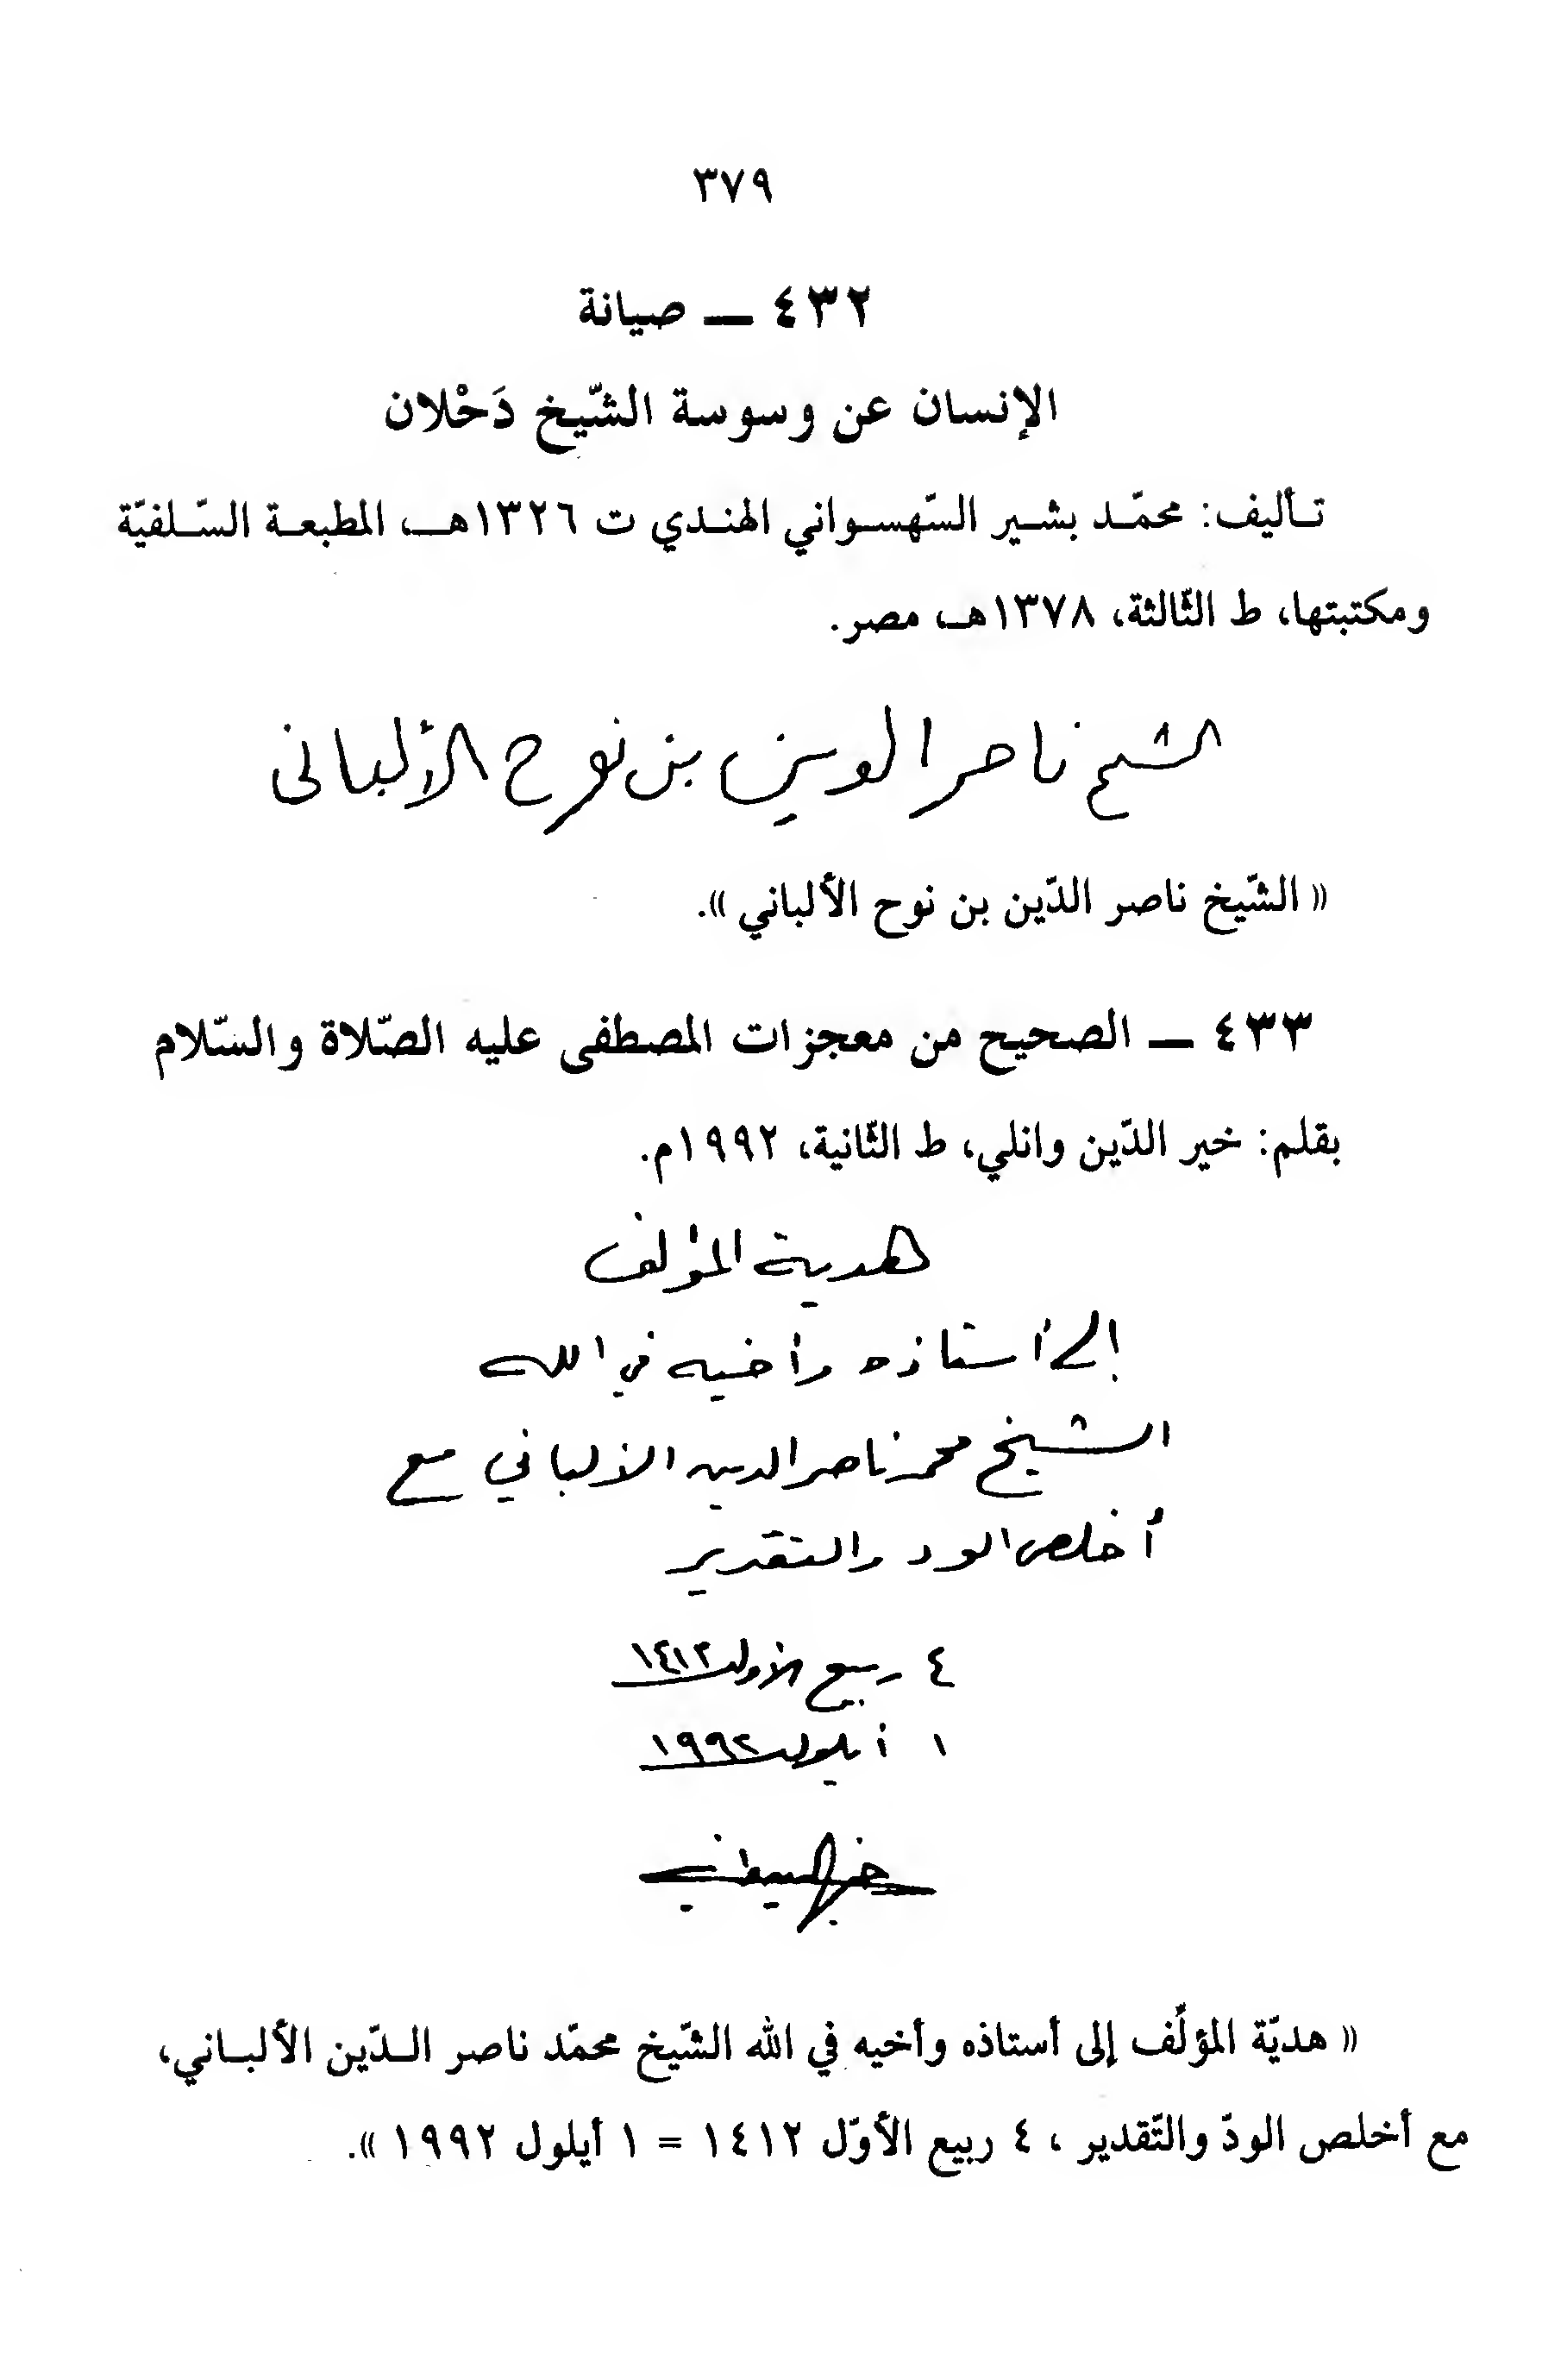 ٣٧٩
٤٣٢ ـ صيانة
الإنسان عن وسوسة الشّيخ دَحْلان
تأليف: محمّد بشير السّهسواني الهندي ت ١٣٢٦هـ، المطبعة السّلفيّة
ومكتبتها، ط الثّالثة، ١٣٧٨هـ، مصر.
الشيخ ناصر الدين بن نوح الألباني
« الشّيخ ناصر الدّين بن نوح الألباني ».
٤٣٣ ـ الصحيح من معجزات المصطفى عليه الصّلاة والسّلام
بقلم: خير الدّين وانلي، ط الثّانية، ١٩٩٢م.
هدية المؤلف
إلى أستاذه وأخيه في الله
الشيخ محمد ناصر الدين الألباني مع
أخلص الود والتقدير
٤ ربيع الأول ١٤١٢
١ أيلول ١٩٩٢
« هديّة المؤلِّف إلى أستاذه وأخيه في الله الشّيخ محمّد ناصر الدّين الألباني،
مع أخلص الودّ والتّقدير ، ٤ ربيع الأوّل ١٤١٢ = ١ أيلول ١٩٩٢ ».